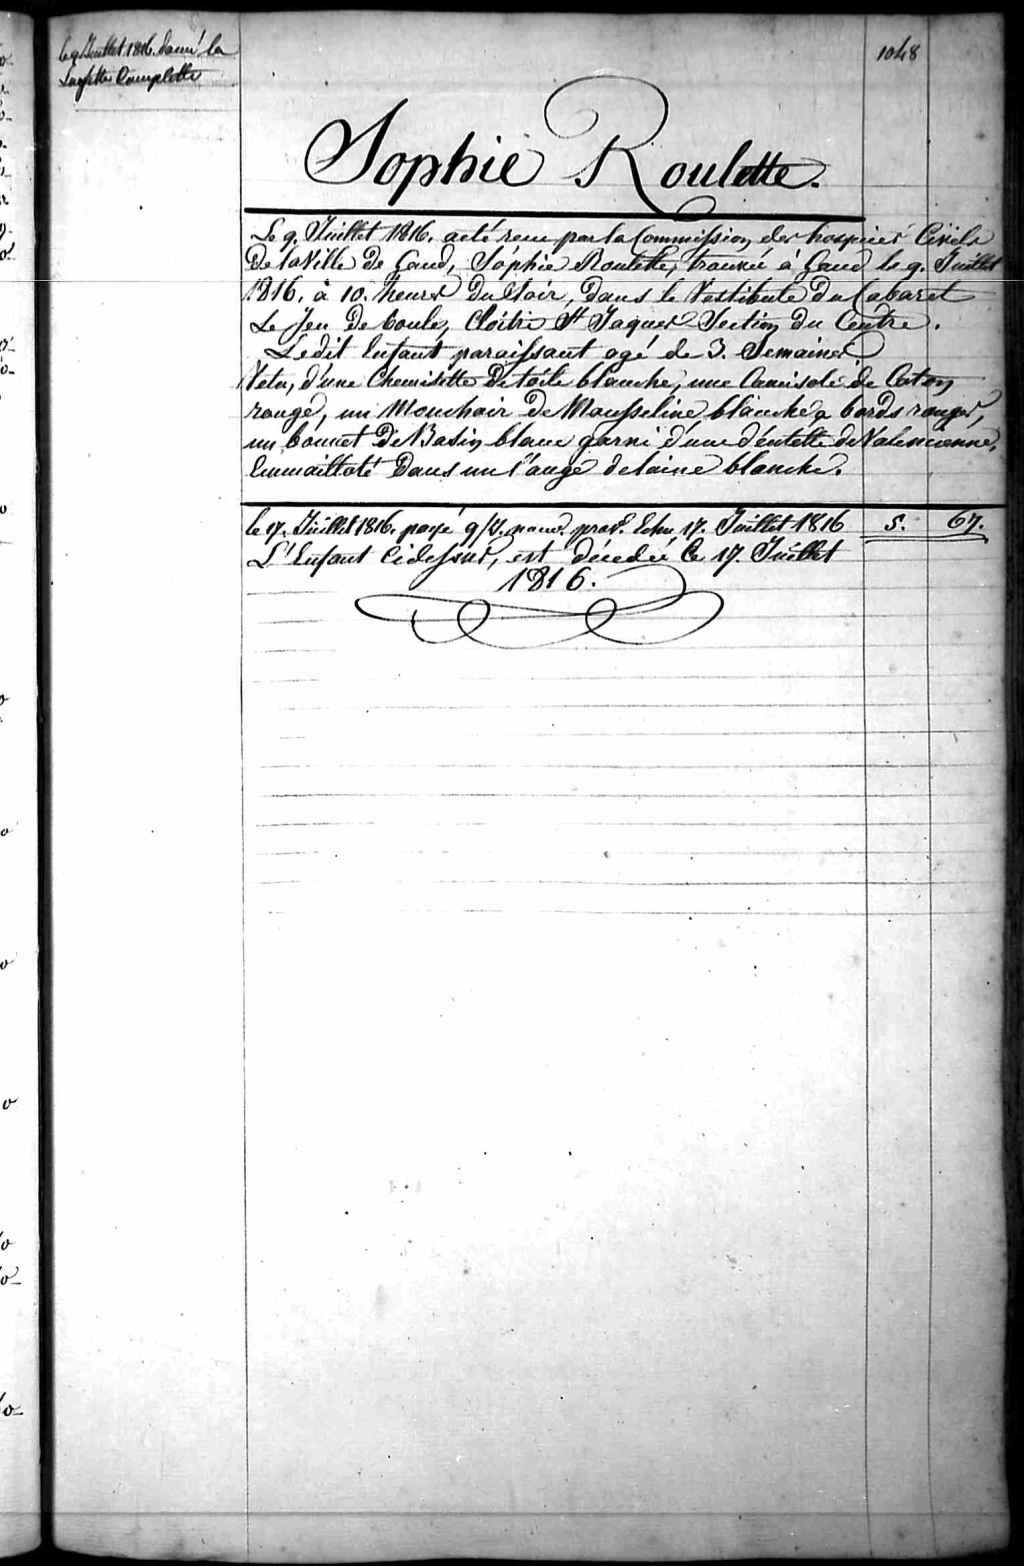 le 9 Juillet 1816. donné la
Layette Complette
1048
Sophie Roulette.
Le 9. Juillet 1816. a été recu par la Commission des hospices Civils
De la Ville de Gand, Sophie Roulette, trouvée à Gand le 9. Juillet
1816. à 10. heures Du Soir, Dans le Vestibule Du Cabaret
Le Jeu De boule, Cloitre St Jaques Section Du Centre.
Ledit Enfant paraissant agé de 3. Semaines
Vetu, d'une Chemisette De toile blanche, une Camisole de Coton
rouge, un Mouchoir De Mousseline blanche a bords rouges,
un bonnet De Basin blanc garni d'une dentelle De Valencienne,
Emmailloté Dans un l'ange de laine blanche.
le 17. Juillet 1816. payé 9/ Echu 17. Juillet 1816 5. 67.
L'Enfant Cidessus, est décedé le 17. Juillet
1816.